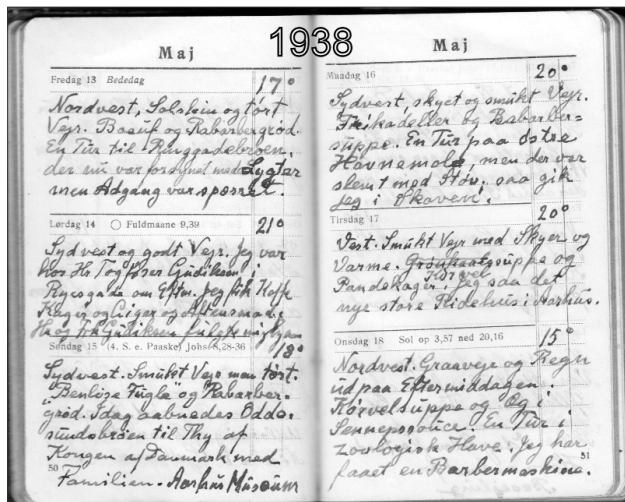 1938
Maj
Fredag 13 Bededag
17°
Nordvest, Solskin og tørt
Vejr. Boeuf og Rabarbergrød.
En Tur til Ringgadebroen,
der nu var forsynet med Lygter
men Adgang var spærret.
Lørdag 14 Fuldmaane 9,39
21°
Sydvest og godt Vejr. Jeg var
hos Hr. Togfører Gudiksen i
Rycsgade om Efterm. Jeg fik Kaffe
Kager og Cigar og Aftensmad.
Hr og Fru Gudiksen fulgte mig hjem
Søndag 15 (4. S. e. Paaske) Johs. 8,28-36
18°
Sydvest. Smukt Vejr man tørt.
"Benløse Fugle" og Rabarber-
grød. Idag aabnedes Odde-
sundsbroen til Thy af
Kongen af Danmark med
Familien. Aarhus Museum
50
Maj
Mandag 16
20°
Sydvest, skyet og smukt Vejr.
Frikadeller og Rabarber-
suppe. En Tur paa østre
Havnemole, men der var
slemt med Støv, saa gik
jeg i Skoven.
Tirsdag 17
20°
Vest. Smukt Vejr med Skyer og
Varme. Grønkaalssuppe og
Kørvel
Pandekager. Jeg saa det
nye store Ridehus i Aarhus.
Onsdag 18 Sol op 3,57 ned 20,16
15°
Nordvest. Graavejr og Regn
ud paa Eftermiddagen.
Kørvelsuppe og Æg i
Sennepssouce. En Tur i
zoologisk Have. Jeg har
faaet en Barbermaskine.
51